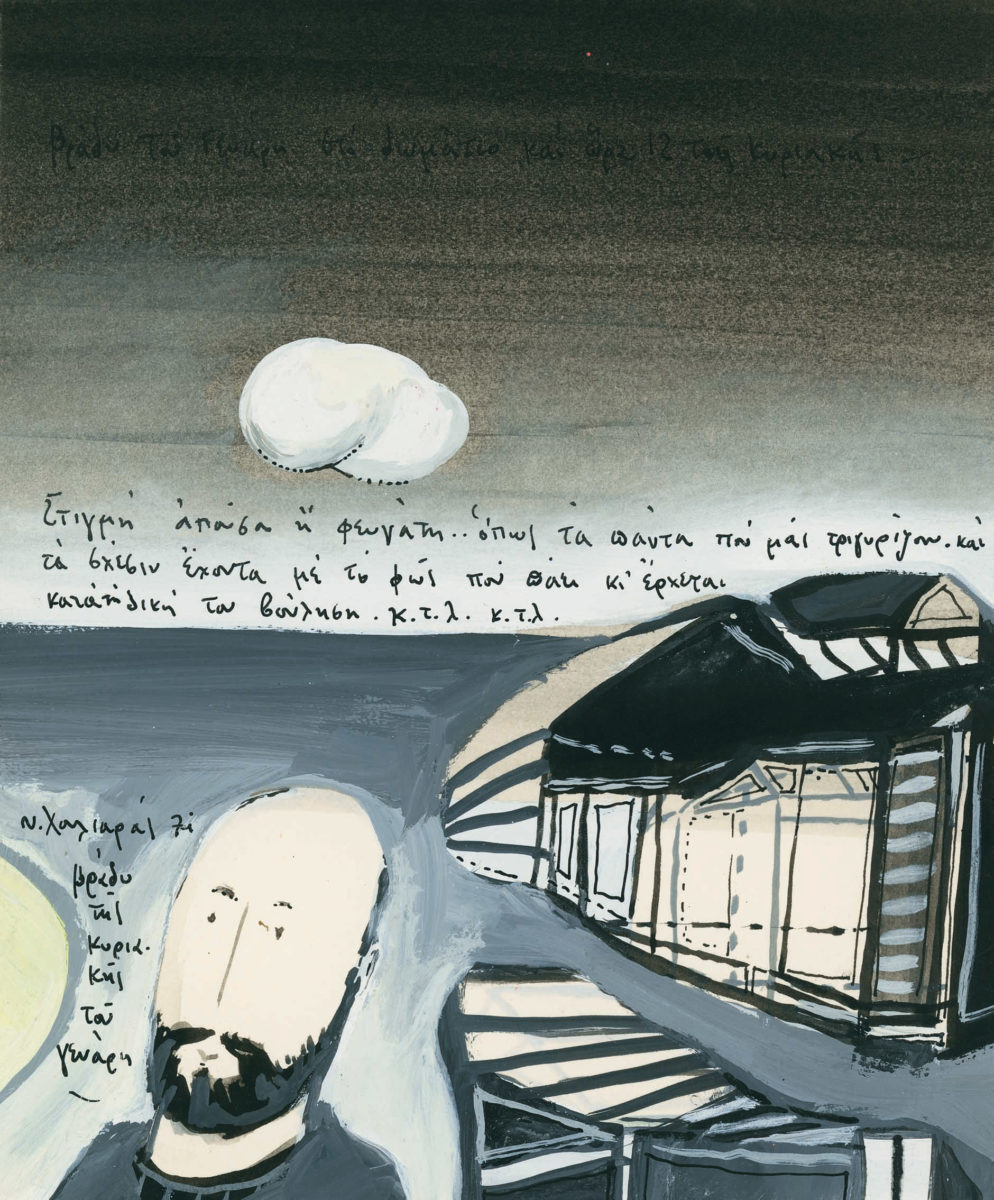 βράδυ τοῦ Γενάρη στὸ δωμάτιο καὶ ὥρα 12 τῆς κυριακῆς
Στιγμὴ ἀπούσα ἢ φευγάτη.. ὅπως τὰ πάντα ποὺ μᾶς τριγυρίζουν. καὶ
τὰ σχέσιν ἔχοντα μὲ τὸ φῶς ποὺ πάει κι' ἔρχεται
κατὰ τὴ δική του βούληση. κ.τ.λ. κ.τ.λ.
ν. Χουλιαρᾶς
βράδυ
τῆς
κυρια-
κῆς
τοῦ
γενάρη